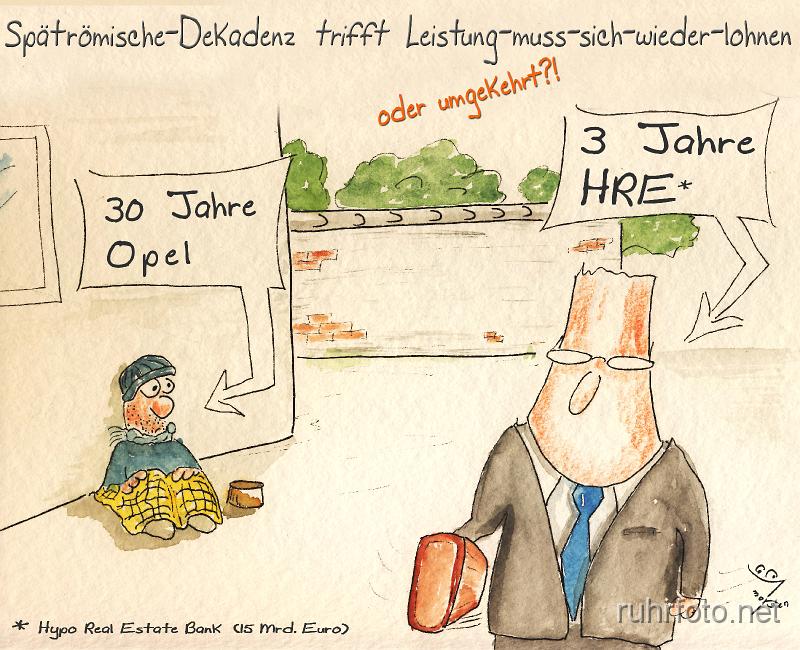 Spätrömische-Dekadenz trifft Leistung-muss-sich-wieder-lohnen
oder umgekehrt?!
30 Jahre
Opel
3 Jahre
HRE*
* Hypo Real Estate Bank (15 Mrd. Euro)
ruhrfoto.net